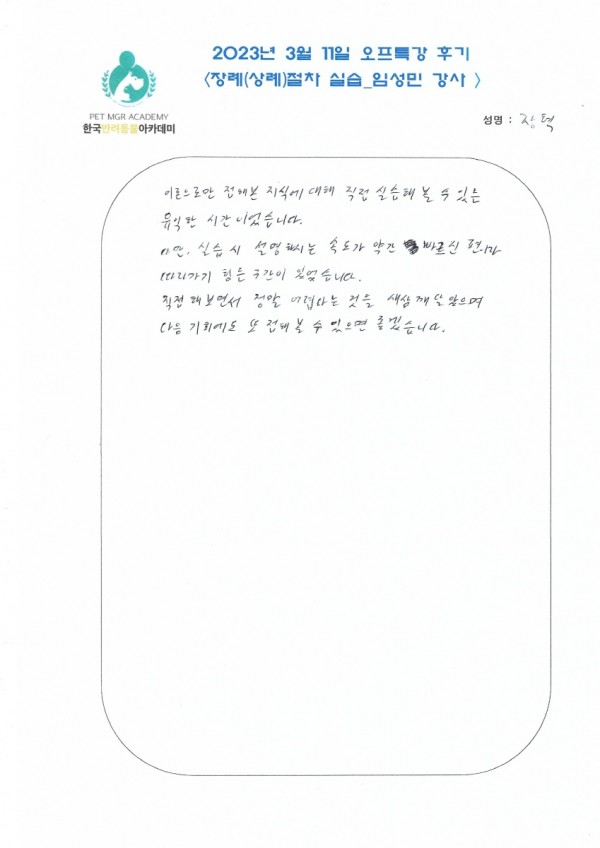 2023년 3월 11일 오프특강 후기
<장례(상례)절차 실습_임성민 강사 >
PET MGR ACADEMY
한국반려동물아카데미
성명 : 장혁
이론으로만 접해본 지식에 대해 직접 실습해 볼 수 있는
유익한 시간이었습니다.
다만, 실습 시 설명하시는 속도가 약간 빠르신 편이라
따라가기 힘든 구간이 있었습니다.
직접 해보면서 정말 어렵다는 것을 새삼 깨달았으며
다음 기회에도 또 접해 볼 수 있으면 좋겠습니다.